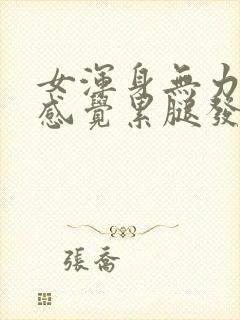 女渾身無力
感覺累腿發
張喬